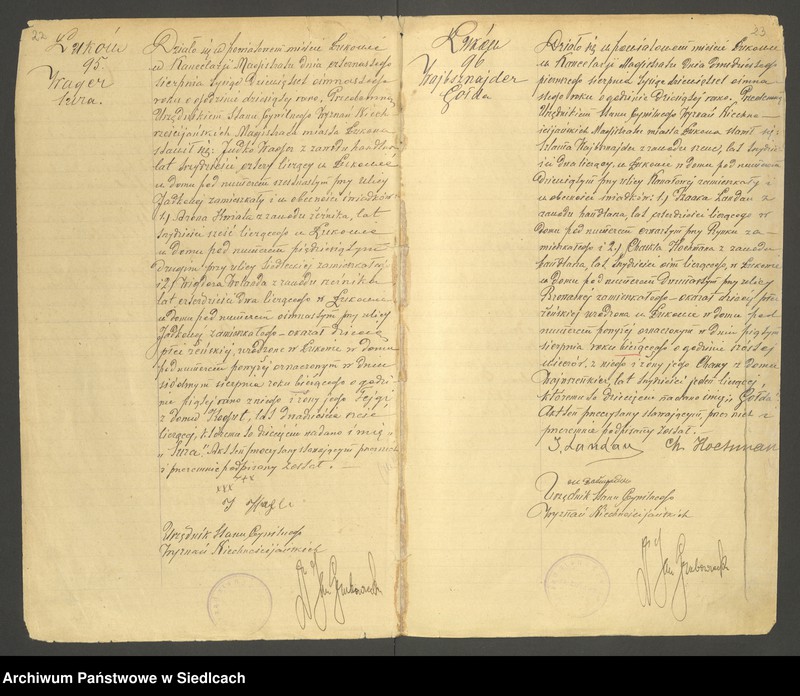 22
Łuków
95.
Wager
Cura.
Działo się w powiatowem mieście Łukowie
w Kancelarji Magistratu dnia ósmnastego
sierpnia tysiąc dziewięćset ośmnastego
roku o godzinie dziesiątej rano. Przedemną
Urzędnikiem Stanu Cywilnego Wyznań Niech-
rześcijańskich Magistratu miasta Łukowa
stawił się: Judko Wager z zawodu handlarz
lat trzydzieści cztery liczący w Łukowie
w domu pod numerem przy ulicy
zamieszkały i w obecności świadków:
1) Arona z zawodu rzeźnika, lat
trzydzieści sześć liczącego w Łukowie
w domu pod numerem pięćdziesiątym
drugim przy ulicy Siedleckiej zamieszkałego
i 2) z zawodu rzeźnika
lat czterdzieści dwa liczącego w Łukowie
w domu pod numerem ośmnastym przy ulicy
zamieszkałego – okazał dziecię
płci żeńskiej, urodzone w Łukowie w domu
pod numerem powyżej oznaczonym w dniu
siódmym sierpnia roku bieżącego o godzi-
nie piątej rano z niego i żony jego Fejgi
z domu lat dwadzieścia
liczącej, któremu to dziecięciu nadano imię
Akt ten przeczytany stawającym przez nich
i przezemnie podpisany został. —
xxx
Urzędnik Stanu Cywilnego
Wyznań Niechrześcijańskich
23
Łuków
96
Wajbsznajder
Gołda
Działo się w powiatowem mieście Łukowie
w Kancelarji Magistratu dnia dwudziestego
pierwszego sierpnia tysiąc dziewięćset ośmna-
stego roku o godzinie dziesiątej rano. Przedemną
Urzędnikiem Stanu Cywilnego Wyznań Niechrze-
ścijańskich Magistratu miasta Łukowa stawił się:
Szlama Wajbsznajder z zawodu lat trzydzie-
ści dwa liczący, w Łukowie w domu pod numerem
dziewiątym przy ulicy Kanałowej zamieszkały i
w obecności świadków: 1) Icaaka Landau z
zawodu handlarza, lat czterdzieści liczącego w
domu pod numerem czwartym przy Rynku za-
mieszkałego i 2) Chaskla Hochmana z zawodu
handlarza, lat trzydzieści ośm liczącego, w Łukowie
w domu pod numerem dwunastym przy ulicy
zamieszkałego – okazał dziecię płci
żeńskiej urodzone w Łukowie w domu pod
numerem powyżej oznaczonym w dniu piątym
sierpnia roku bieżącego o godzinie szóstej
wieczór, z niego i żony jego Chany z domu
lat trzydzieści jeden liczącej,
któremu to dziecięciu nadano imię „Gołda”.
Akt ten przeczytany stawającym, przez nich i
przezemnie podpisany został. —
I. Landau Ch. Hochman
Urzędnik Stanu Cywilnego
Wyznań Niechrześcijańskich
Archiwum Państwowe w Siedlcach